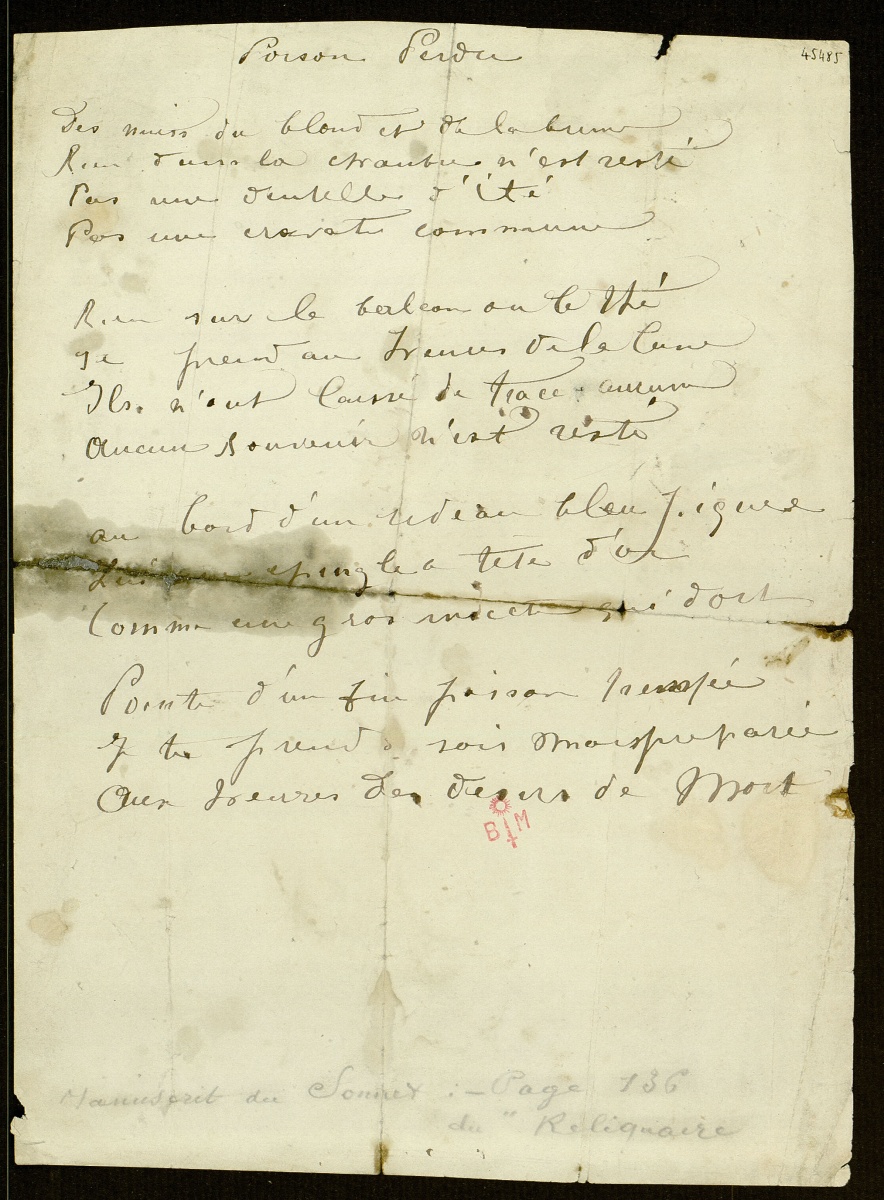 45485
Poison Perdu
Des nuits du blond et de la brune
Rien dans la chambre n'est resté
Pas une dentelle d'été
Pas une cravate commune
Rien sur le balcon ou le thé
Se prend au heures de la lune
Ils n'ont laissé de trace aucune
Aucun souvenir n'est resté
au bord d'un rideau bleu piquée
Luit une epingle a tete d'or
Comme une gros insecte qui dort
Pointe d'un fin poison trempée
Je te prends sois moi preparée
Aux heures des desirs de Mort
BM
Manuscrit du Sonnet : - Page 136
du " Reliquaire